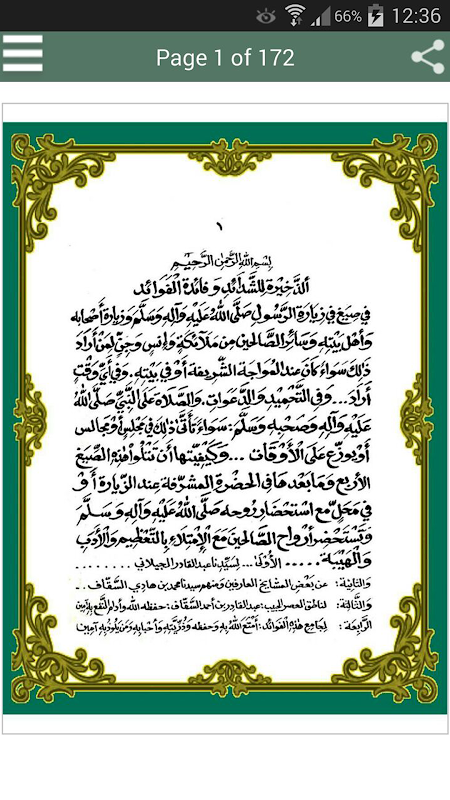 66% 12:36
Page 1 of 172
١
بِسْمِ اللهِ الرَّحْمٰنِ الرَّحِيْمِ
اَلذَّخِيْرَةُ لِلشَّدَائِدِ وَفَائِدَةُ الْفَوَائِد
في صِيَغٍ في زيارة الرَّسُولِ صَلَّى اللهُ عَلَيْهِ وَآلِهِ وَسَلَّمَ وَزِيَارَةِ أَصْحَابِهِ
وَأَهْلِ بَيْتِهِ وَسَائِرِ الصَّالِحِينَ مِن مَلَائِكَةٍ وَإِنْسٍ وَجِنٍّ لِمَنْ أَرَادَ
ذلك سَوَاءً كَانَ عِنْدَ المُوَاجَهَةِ الشَّرِيفَةِ أَوْ فِي بَيْتِهِ. وفي أَيِّ وَقْتٍ
أَرَادَ... وفي التَّحْمِيدِ وَالدَّعَوَاتِ. وَالصَّلَاةِ عَلَى النَّبِيِّ صَلَّى اللهُ
عَلَيْهِ وَآلِهِ وَصَحْبِهِ وَسَلَّمَ: سَوَاءً تَأَتَّى ذلِكَ فِي مَجْلِسٍ أَوْ مَجَالِس
أَوْ يُوَزَّع عَلَى الْأَوْقَاتِ ... وَكَيْفِيَّتُهَا أَن تَتْلُوَ هٰذِهِ الصِّيَغَ
الأَرْبَعِ وَمَا بَعْدَهَا فِي الحَضْرَةِ المُشَرَّفَةِ عِنْدَ الزِّيَارَةِ أَوْ
فِي مَحَلٍّ مَعَ اسْتِحْضَارِ رُوحِهِ صَلَّى اللهُ عَلَيْهِ وَآلِهِ وَسَلَّم
وَتَسْتَحْضِر أَرْوَاحَ الصَّالِحِينَ مَعَ الْإِمْتِلَاءِ بِالتَّعْظِيمِ وَالْأَدَبِ
وَالْهَيْبَةِ..... الْأُولَى: لِسَيِّدِنَا عبدالقادر الجيلاني ........
وَالثَّانِيَة: عن بَعْضِ المَشَايخ العارفين ومنهم سيدنا محمد بن هادي السَّقَّاف.
وَالثَّالِثَة: لناطق العصر الحبيب: عبدالقادر بن أحمد السَّقَّاف: حفظه الله وأدام النَّفع به آمين
الرَّابِعَة: لِجَامِعِ هٰذِهِ الفَوَائِدِ: أَمْتَعَ اللهُ بِهِ وحفظه وَذُرِّيَّتِهِ وأحبابه وَمَن يَلُوذُ به آمين